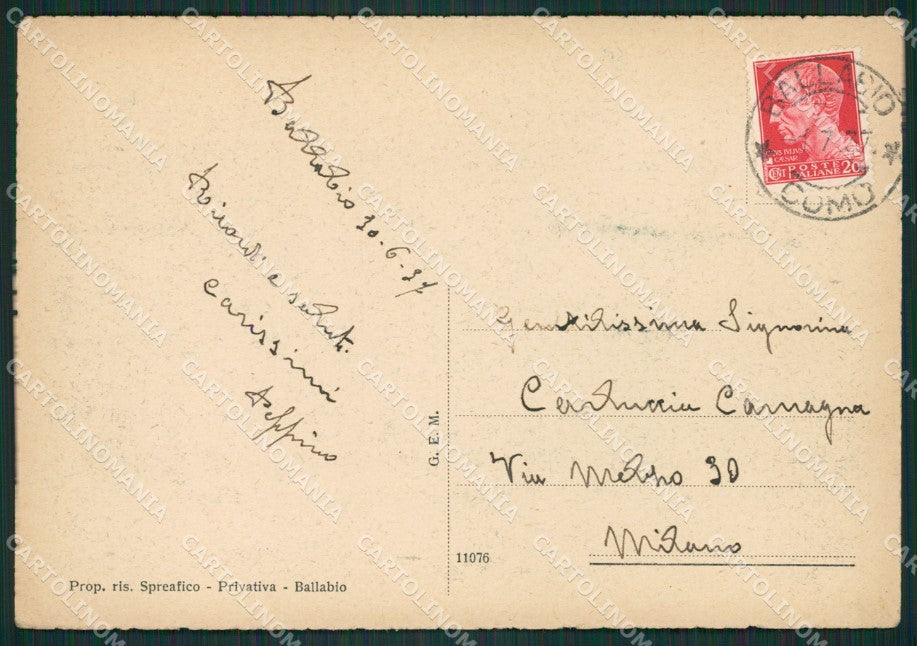 Ballabio 30-6-37
Ricordi e saluti
carissimi
Peppino
BALLABIO
COMO
IVLIVS
CAESAR
POSTE
CENT ITALIANE 20
Gentilissima Signorina
Carluccia Camagna
Via Melzo 30
Milano
G. E. M.
11076
Prop. ris. Spreafico - Privativa - Ballabio
CARTOLINOMANIA